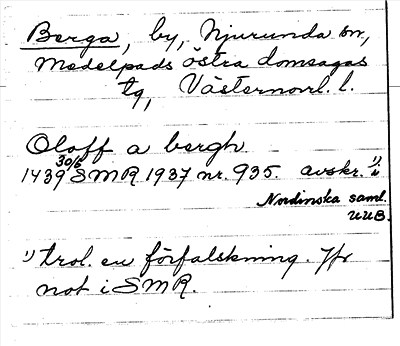 Berga, by, Njurunda sn,
Medelpads östra domsagas
tg, Västernorrl. l.
Oloff a bergh
1439 30/6 SMR 1937 nr. 935. avskr. 1) i
Nordinska saml.
UUB.
1) trol. en förfalskning. Jfr
not i SMR.